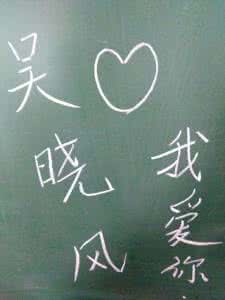 吴♡
晓
风
我爱你